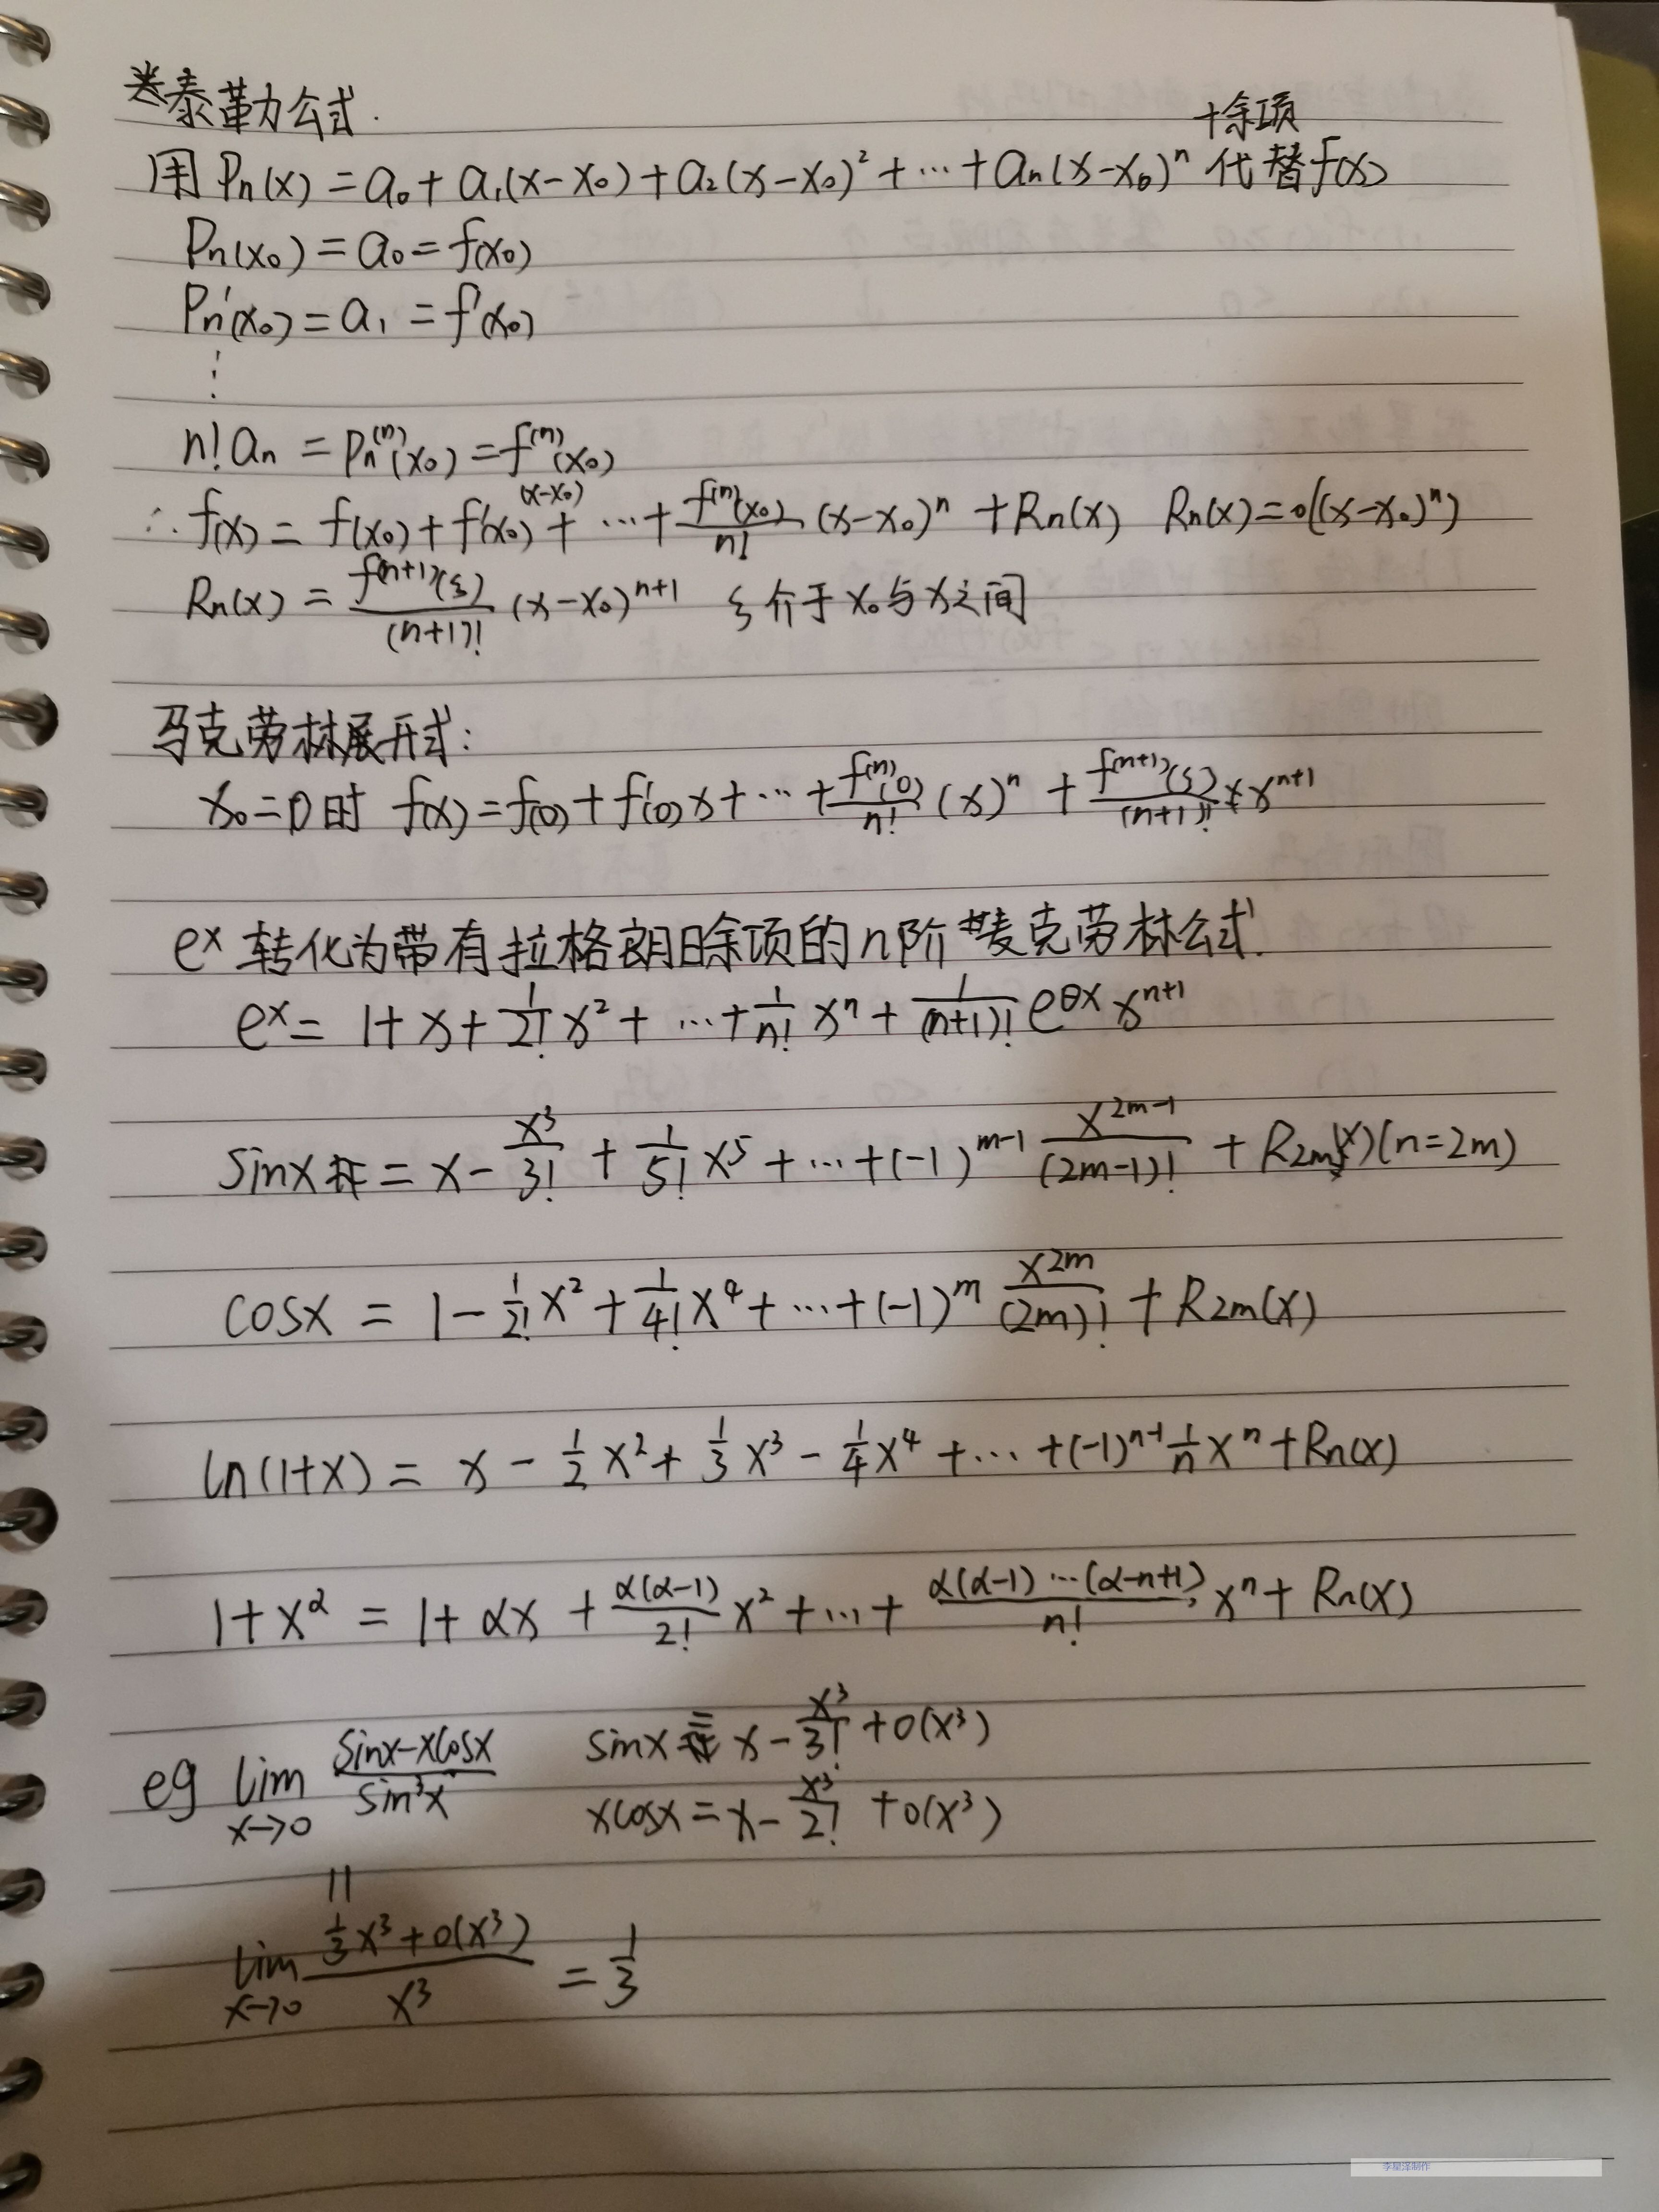 泰勒公式.
+余项
用 Pn(x) = a₀ + a₁(x-x₀) + a₂(x-x₀)² + ⋯ + an(x-x₀)ⁿ 代替f(x)
Pn(x₀) = a₀ = f(x₀)
Pn'(x₀) = a₁ = f'(x₀)
⋮
n! an = Pn⁽ⁿ⁾(x₀) = f⁽ⁿ⁾(x₀)
∴ f(x) = f(x₀) + f'(x₀)(x-x₀) + ⋯ + f⁽ⁿ⁾(x₀)/n! (x-x₀)ⁿ + Rn(x) Rn(x) = o((x-x₀)ⁿ)
Rn(x) = f⁽ⁿ⁺¹⁾(ξ)/(n+1)! (x-x₀)ⁿ⁺¹ ξ介于x₀与x之间
马克劳林展开式:
x₀=0时 f(x) = f(0) + f'(0)x + ⋯ + f⁽ⁿ⁾(0)/n! (x)ⁿ + f⁽ⁿ⁺¹⁾(ξ)/(n+1)! xⁿ⁺¹
eˣ 转化为带有拉格朗日余项的n阶麦克劳林公式.
eˣ = 1 + x + 1/2! x² + ⋯ + 1/n! xⁿ + 1/(n+1)! e^θx xⁿ⁺¹
sinx = x - x³/3! + 1/5! x⁵ + ⋯ + (-1)^m-1 x^2m-1/(2m-1)! + R2m(x) (n=2m)
cosx = 1 - 1/2! x² + 1/4! x⁴ + ⋯ + (-1)^m x^2m/(2m)! + R2m(x)
ln(1+x) = x - 1/2 x² + 1/3 x³ - 1/4 x⁴ + ⋯ + (-1)ⁿ⁻¹ 1/n xⁿ + Rn(x)
1+x^α = 1 + αx + α(α-1)/2! x² + ⋯ + α(α-1)⋯(α-n+1)/n! xⁿ + Rn(x)
eg lim x→0 sinx-xcosx/sin³x sinx = x - x³/3! + o(x³)
xcosx = x - x³/2! + o(x³)
||
lim x→0 1/3 x³+o(x³)/x³ = 1/3
李星泽制作